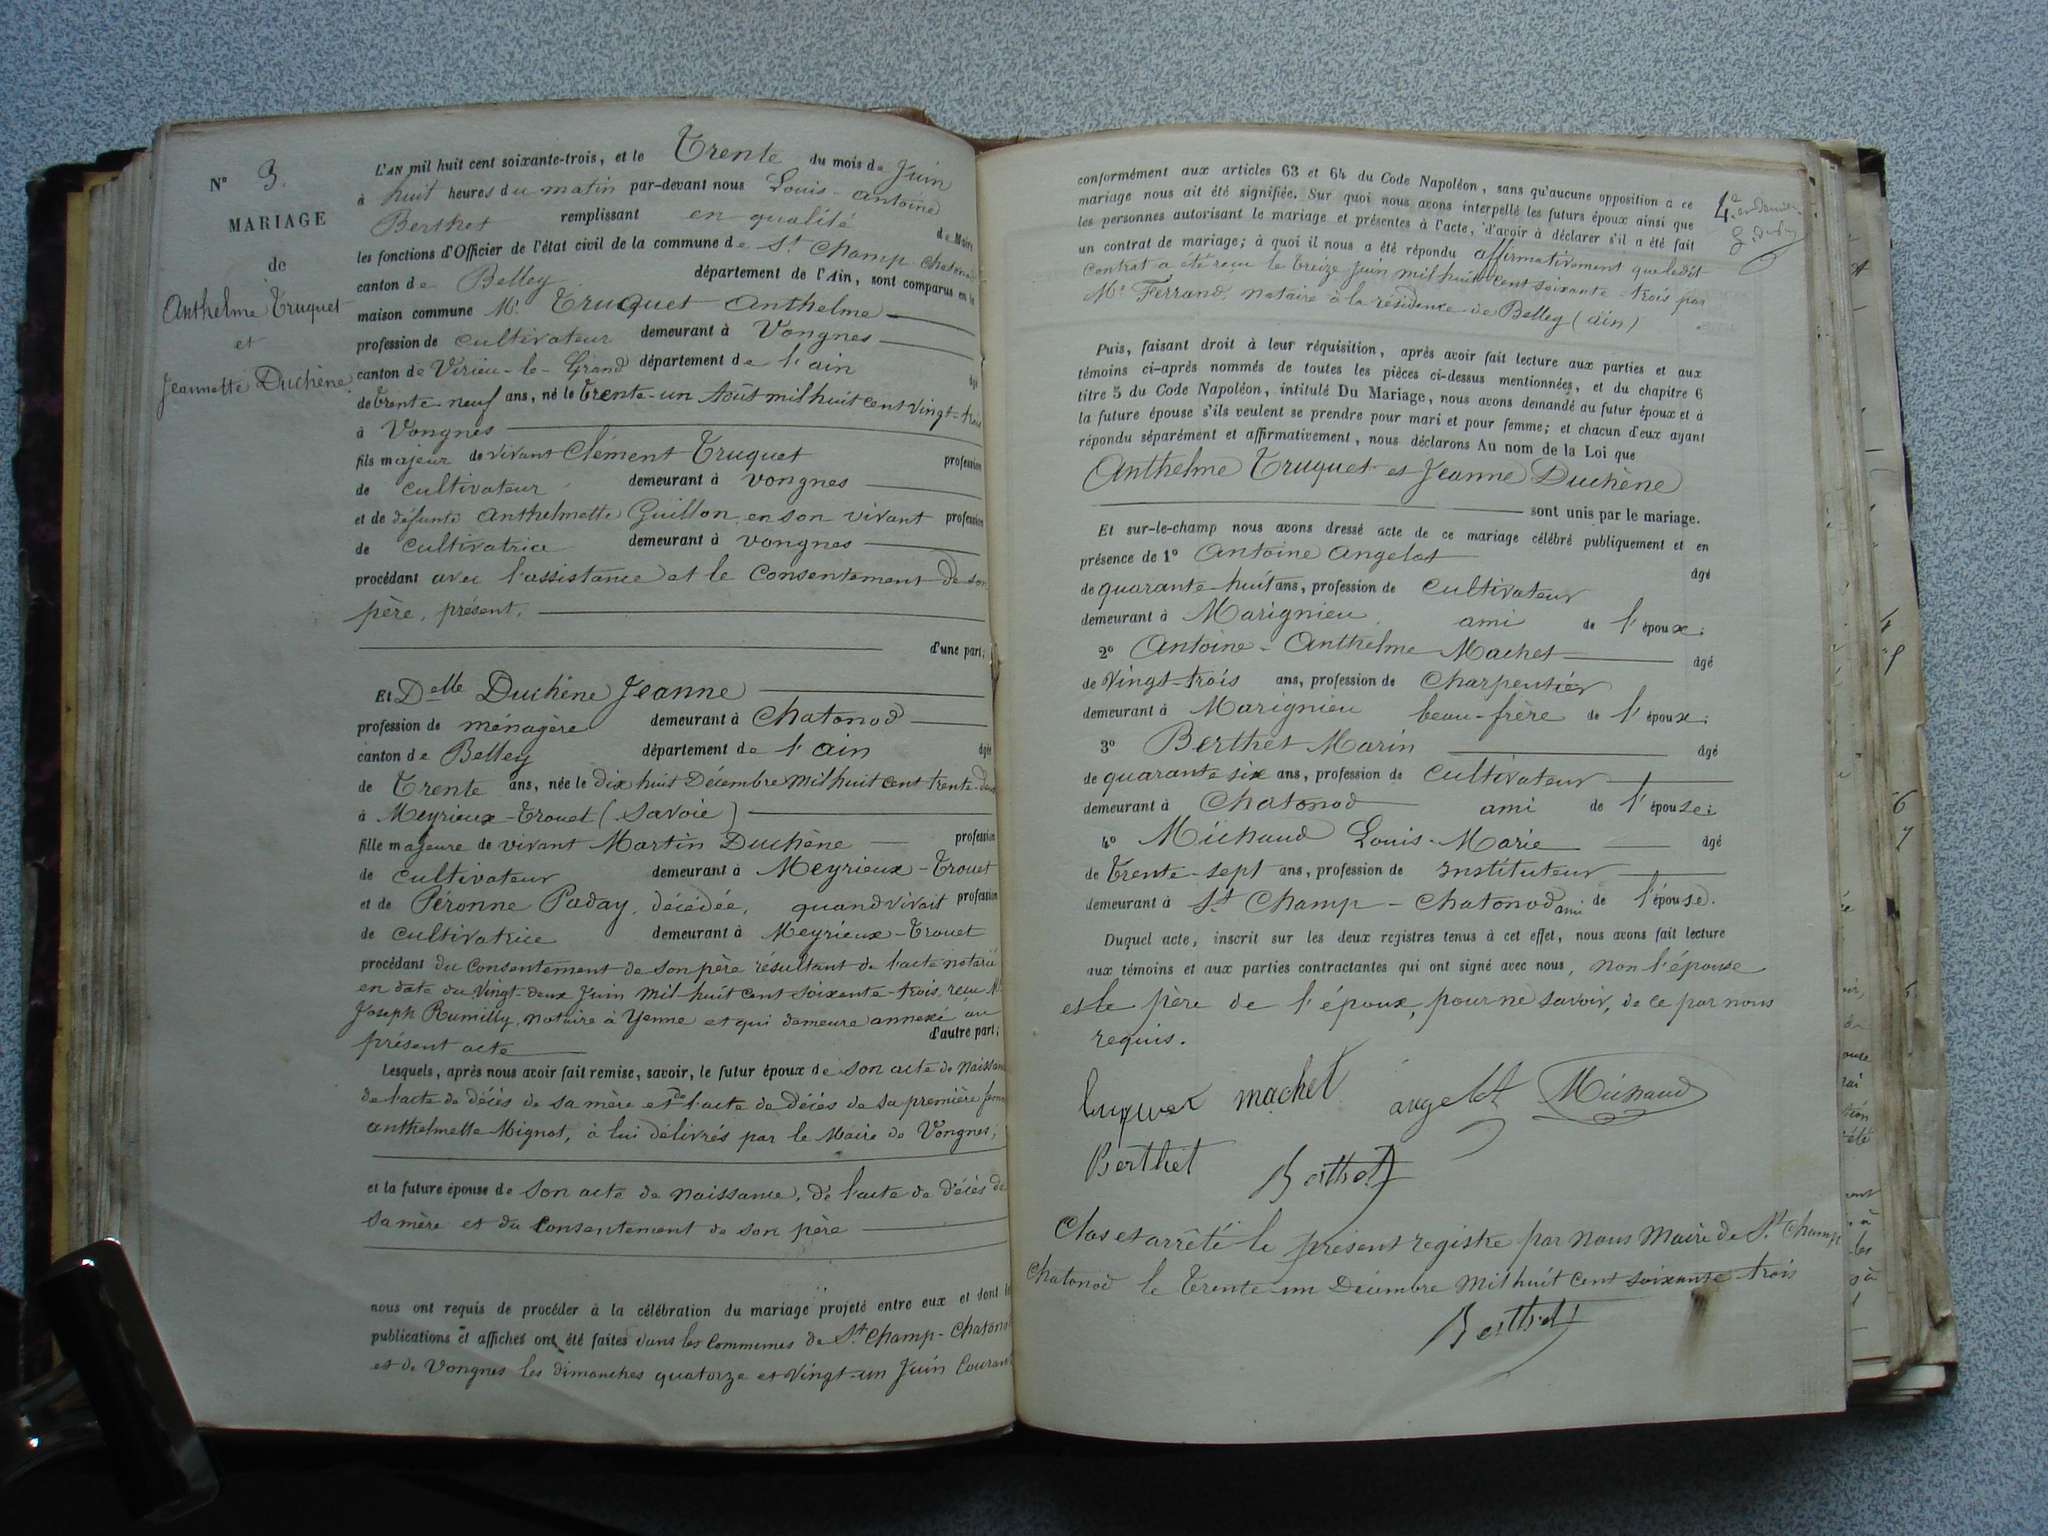 N° 3.
MARIAGE
de
Anthelme Truquet
et
Jeannette Duchêne
L'AN mil huit cent soixante-trois, et le Trente du mois de Juin
à huit heures du matin par-devant nous Louis-Antoine
Berthet remplissant en qualité de Maire
les fonctions d'Officier de l'état civil de la commune de St Champ Chatonod
canton de Belley département de l'Ain, sont comparus en la
maison commune Mr. Truquet Anthelme
profession de cultivateur demeurant à Vongnes
canton de Virieu-le-Grand département de l'ain âgé
de trente-neuf ans, né le trente-un Août mil huit cent vingt-trois
à Vongnes
fils majeur de vivant Clément Truquet profession
de cultivateur demeurant à vongnes
et de défunte Anthelmette Guillon, en son vivant profession
de cultivatrice demeurant à vongnes
procédant avec l'assistance et le consentement de son
père, présent,
d'une part;
Et Delle Duchêne Jeanne
profession de ménagère demeurant à Chatonod
canton de Belley département de l'ain âgée
de Trente ans, née le dix huit Décembre mil huit cent trente-deux
à Meyrieux-Trouet (Savoie)
fille majeure de vivant Martin Duchêne profession
de cultivateur demeurant à Meyrieux-Trouet
et de Péronne Paday, décédée, quand vivait profession
de cultivatrice demeurant à Meyrieux-Trouet
procédant du consentement de son père résultant de l'acte notarié
en date du vingt-deux Juin mil huit cent soixante-trois, reçu Me
Joseph Rumilly, notaire à Yenne et qui demeure annexé au
présent acte d'autre part;
Lesquels, après nous avoir fait remise, savoir, le futur époux de son acte de naissance
de l'acte de décès de sa mère et de l'acte de décès de sa première femme
anthelmette Mignot, à lui délivrés par le Maire de Vongnes;
et la future épouse de son acte de naissance, de l'acte de décès de
sa mère et du consentement de son père
nous ont requis de procéder à la célébration du mariage projeté entre eux et dont les
publications et affiches ont été faites dans les Communes de St Champ-Chatonod
et de Vongnes les dimanches quatorze et vingt-un Juin courant
conformément aux articles 63 et 64 du Code Napoléon, sans qu'aucune opposition à ce
mariage nous ait été signifiée. Sur quoi nous avons interpellé les futurs époux ainsi que
les personnes autorisant le mariage et présentes à l'acte, d'avoir à déclarer s'il a été fait
un contrat de mariage; à quoi il nous a été répondu affirmativement que ledit
contrat a été reçu le treize Juin mil huit cent soixante-trois par
Me Ferrand, notaire à la résidence de Belley (ain)
Puis, faisant droit à leur réquisition, après avoir fait lecture aux parties et aux
témoins ci-après nommés de toutes les pièces ci-dessus mentionnées, et du chapitre 6
titre 5 du Code Napoléon, intitulé Du Mariage, nous avons demandé au futur époux et à
la future épouse s'ils veulent se prendre pour mari et pour femme; et chacun d'eux ayant
répondu séparément et affirmativement, nous déclarons Au nom de la Loi que
Anthelme Truquet et Jeanne Duchêne
sont unis par le mariage.
Et sur-le-champ nous avons dressé acte de ce mariage célébré publiquement et en
présence de 1° Antoine Angelot
âgé
de quarante-huit ans, profession de cultivateur
demeurant à Marignieu ami de l'époux;
2° Antoine-Anthelme Machet âgé
de vingt-trois ans, profession de charpentier
demeurant à Marignieu beau-frère de l'époux;
3° Berthet Marin âgé
de quarante six ans, profession de cultivateur
demeurant à Chatonod ami de l'épouse;
4° Michaud Louis-Marie âgé
de Trente-sept ans, profession de instituteur
demeurant à St Champ-Chatonod ami de l'épouse.
Duquel acte, inscrit sur les deux registres tenus à cet effet, nous avons fait lecture
aux témoins et aux parties contractantes qui ont signé avec nous, non l'épouse
et le père de l'époux, pour ne savoir, de ce par nous
requis.
machet angelot Michaud
Berthet Berthet
Clos et arrêté le présent registre par nous Maire de St Champ
Chatonod le trente-un Décembre mil huit cent soixante-trois
Berthet